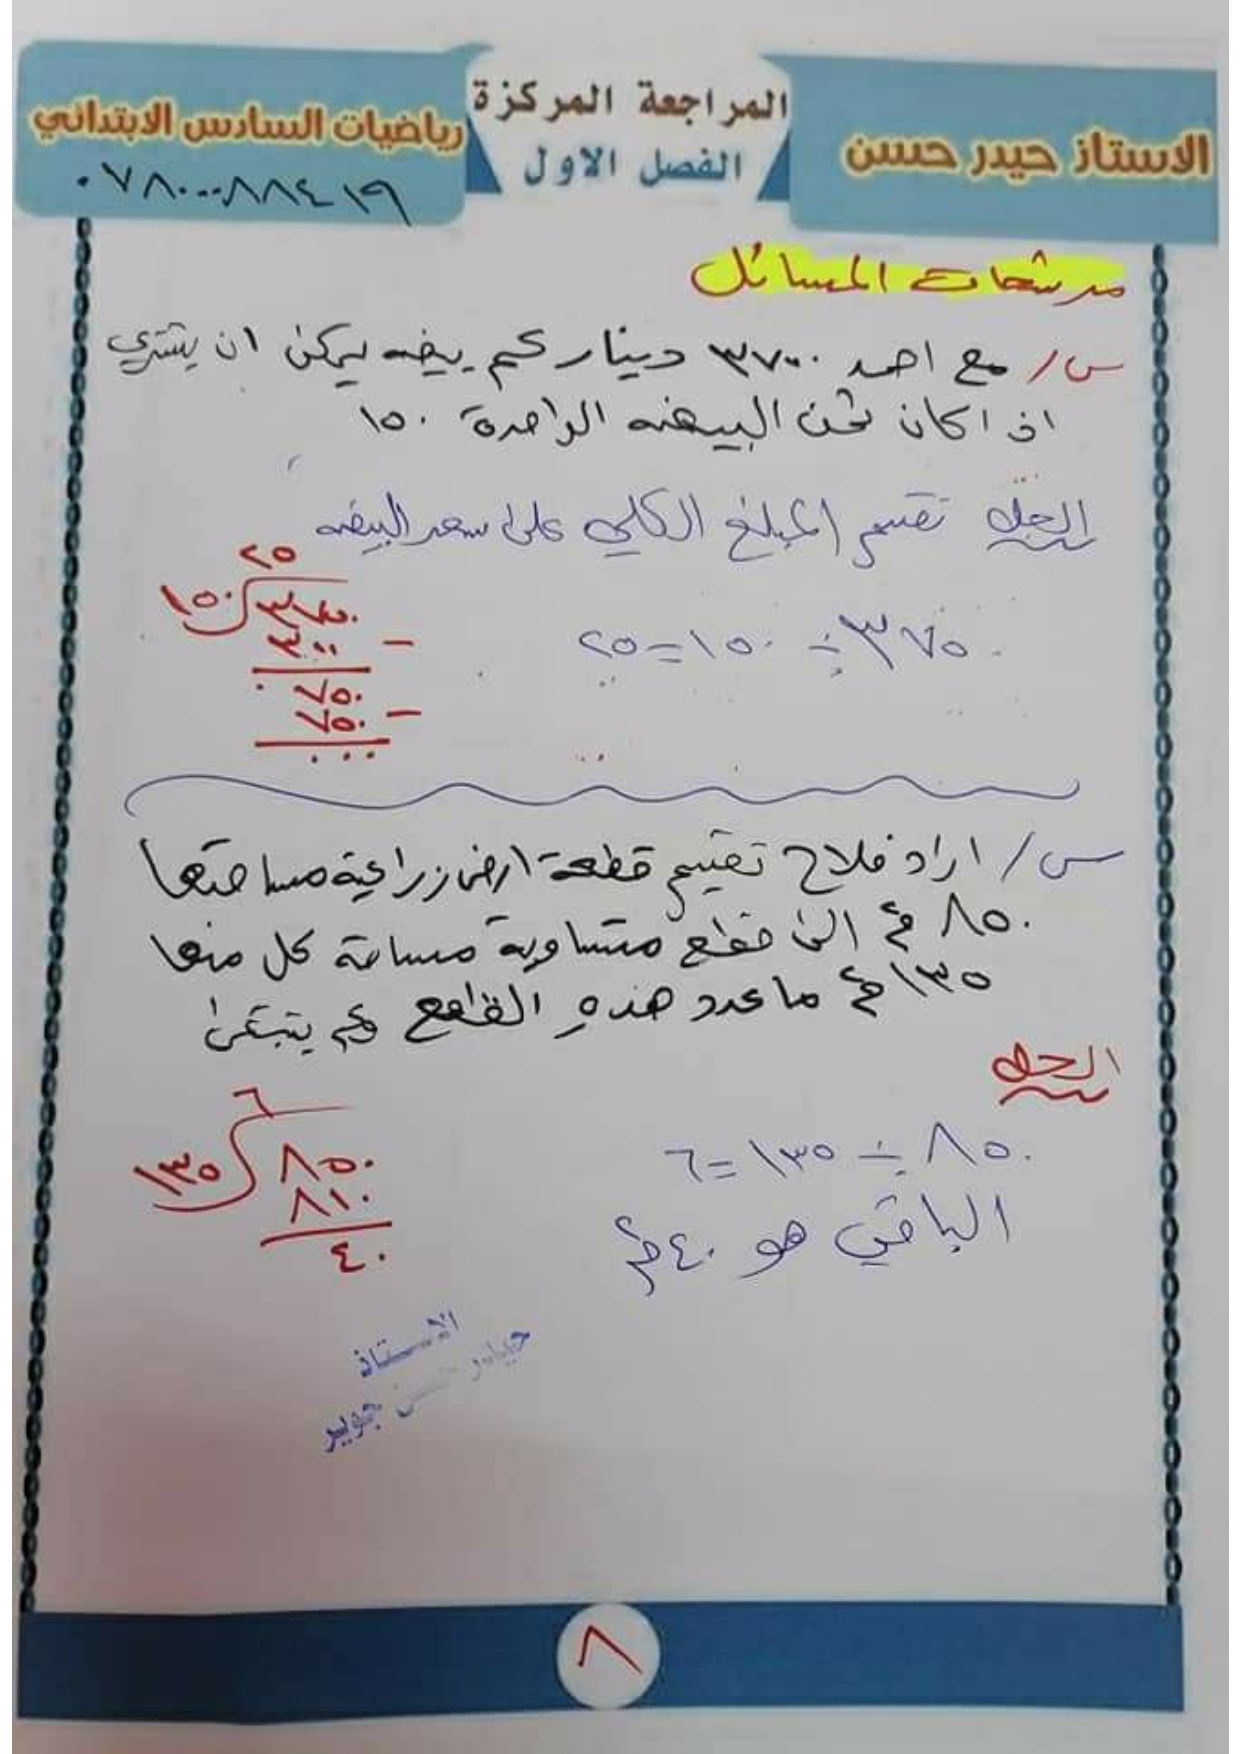 الاستاذ حيدر حسن
المراجعة المركزة
الفصل الاول
رياضيات السادس الابتدائي
٠٧٨٠٠٠٨٨٤١٩
مرشحات المسائل
س/ مع احمد ٣٧٠٠ دينار كم بيضه يمكن ان يشتري
اذا كان ثمن البيضه الواحدة ١٥٠
الحل نقسم المبلغ الكلي على سعر البيضه
٣٧٥٠ ÷ ١٥٠ = ٢٥
٢٥
١٥٠ ٣٧٥٠
٣٠٠ -
٧٥٠
٧٥٠ -
٠٠٠
س/ اراد فلاح تقسيم قطعة ارض زراعية مساحتها
٨٥٠ م٢ الى قطع متساوية مساحة كل منها
١٣٥ م٢ ما عدد هذه القطع وكم يتبقى
الحل
٨٥٠ ÷ ١٣٥ = ٦
الباقي هو ٤٠ م٢
٦
١٣٥ ٨٥٠
٨١٠
٤٠
الاستاذ
حيدر حسن جويبر
٨